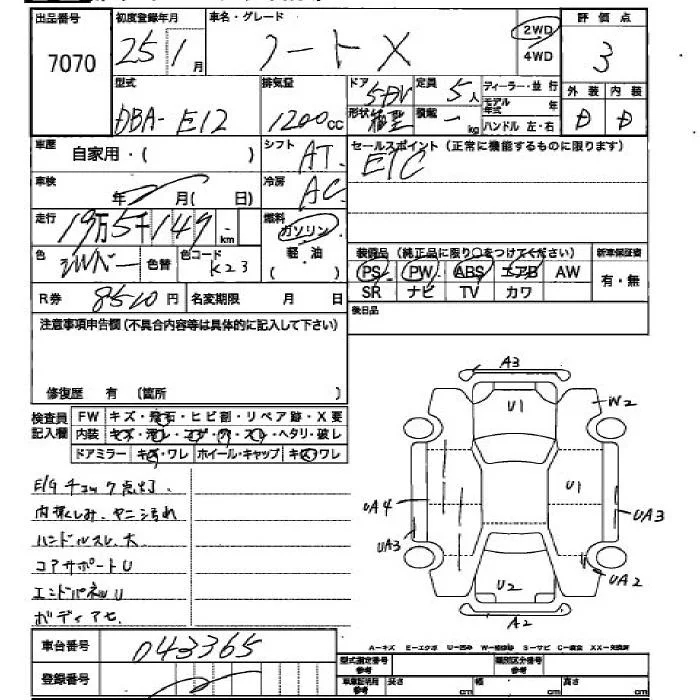 出品番号 初度登録年月 車名・グレード 2WD 4WD 評価点
7070 25 1月 ノート X 3
外装 内装
D D
型式 排気量 ドア 5DV 定員 5人 ディーラー・並行
DBA- E12 1200cc 形状 箱型 積載 - kg モデル年式 年
ハンドル 左・右
車歴 自家用・( ) シフト AT セールスポイント (正常に機能するものに限ります)
ETC
車検 年 月( 日) 冷房 AC
走行 19万5千149 km 燃料 ガソリン 軽・油 ( )
色 シルバー 色替 色コード K23
装備品 (純正品に限り○をつけてください) 新車保証書
PS PW ABS エアB AW 有・無
SR ナビ TV カワ
R券 8510円 名変期限 月 日 後日品
注意事項申告欄 (不具合内容等は具体的に記入して下さい)
修復歴 有 (箇所 )
検査員記入欄 FW キズ・飛石・ヒビ割・リペア跡・X要
内装 キズ・汚レ・コゲ・穴・スレ・ヘタリ・破レ
ドアミラー キズ・ワレ ホイール・キャップ キズ・ワレ
E/G チェック点灯.
内張くしみ、ヤニ汚れ
ハンドルスレ、大
コアサポートU
エンドパネルU
ボディアセ.
A3
U1 W2
UA4 U1 UA3
UA3 UA2
U2
A2
A-キズ E-エクボ U-凹み W-補修跡 S-サビ C-腐食 XX-交換済
車台番号 043365
登録番号
型式指定番号 参考 類別区分番号 参考
車庫証明用 参考 長さ cm 幅 cm 高さ cm